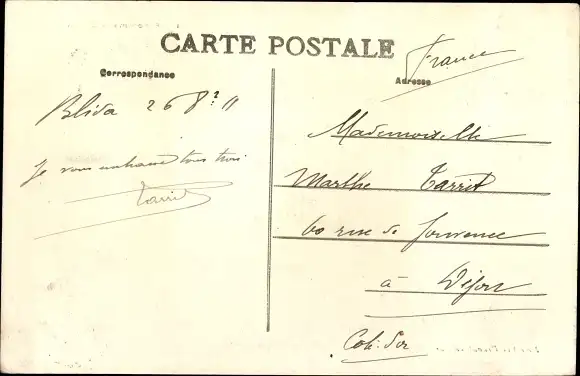 CARTE POSTALE
France
Correspondance
Adresse
Blida 26 8bre 11
Je vous embrasse tous trois.
Tarrit
Mademoiselle
Marthe Tarrit
60 rue de Jouvence
à Dijon
Cote d'or